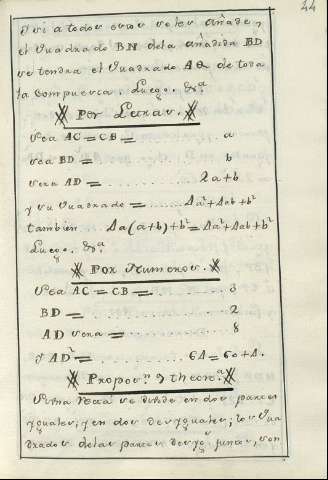 44
I si a todos esos se les añade,
el Quadrado BN dela añadida BD
se tendra el Quadrado AQ de toda
la Compuesta. Luego. &ª
Por Letras.
Sea AC = CB = ......... a
sea BD = ......... b
sera AD = ......... 2a+b
y su Quadrado = ......... 4a²+4ab+b²
tambien 4a(a+b)+b² = 4a²+4ab+b²
Luego. &ª
Por Numeros.
Sea AC = CB = ......... 3
BD = ......... 2
AD sera = ......... 8
y AD² = ......... 64 = 60+4.
Propos.ⁿ 9 theor.ª
Si una Recta se divide en dos partes
yguales; y en dos desyguales; los Qua
drados delas partes desyg.ˢ juntos, son